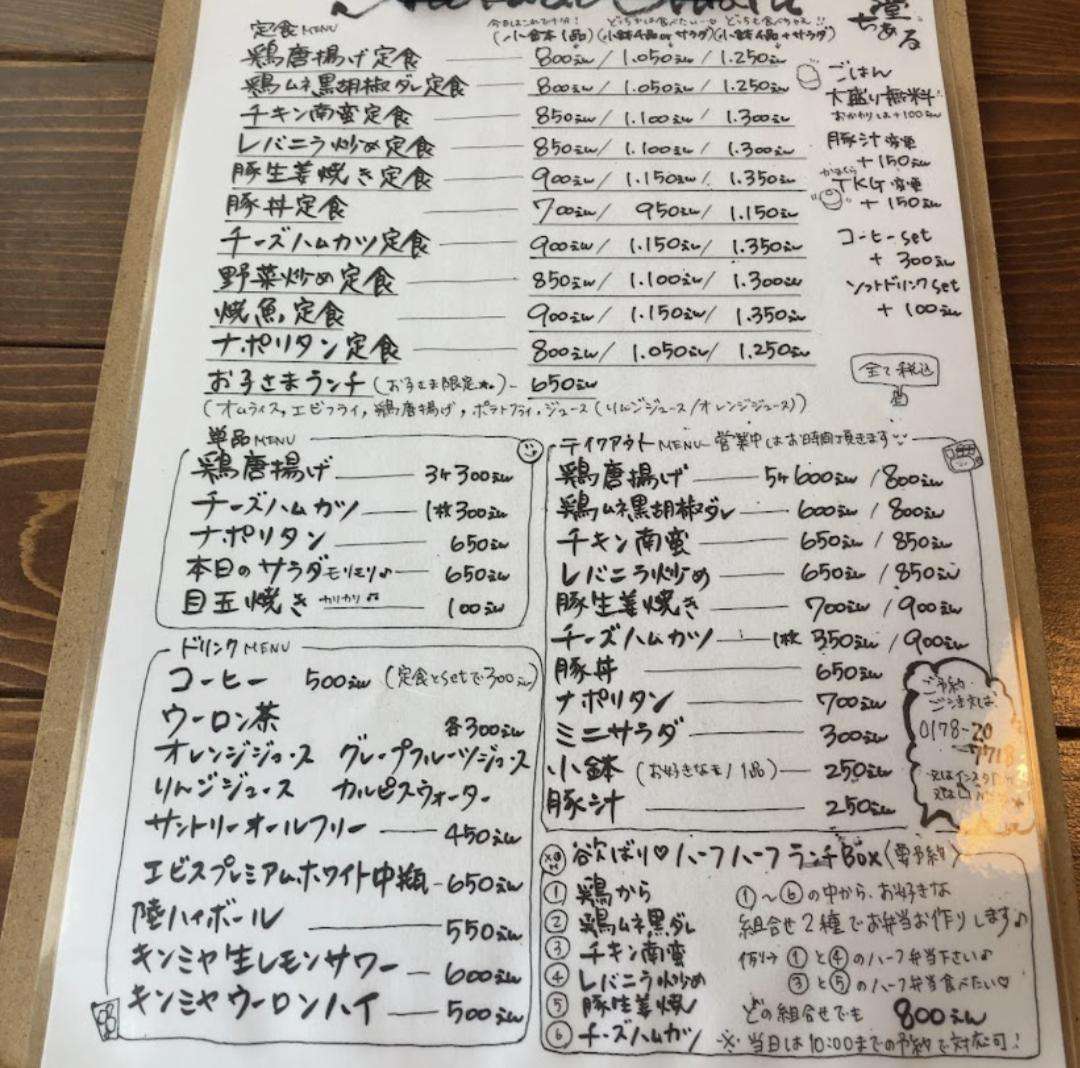 堂
ちぁる
定食MENU
今日はこれで十分! どっちかは食べたい♡ どっちも食べちゃえ!!
(小鉢1品)(小鉢4品orサラダ)(小鉢4品+サラダ)
鶏唐揚げ定食 800えん/1.050えん/1.250えん
鶏ムネ黒胡椒ダレ定食 800えん/1.050えん/1.250えん
チキン南蛮定食 850えん/1.100えん/1.300えん
レバニラ炒め定食 850えん/1.100えん/1.300えん
豚生姜焼き定食 900えん/1.150えん/1.350えん
豚丼定食 700えん/950えん/1.150えん
チーズハムカツ定食 900えん/1.150えん/1.350えん
野菜炒め定食 850えん/1.100えん/1.300えん
焼魚定食 900えん/1.150えん/1.350えん
ナポリタン定食 800えん/1.050えん/1.250えん
お子さまランチ(お子さま限定) 650えん
(オムライス,エビフライ,鶏唐揚げ,ポテトフライ,ジュース(りんごジュース/オレンジジュース))
ごはん
大盛り無料
おかわりは+100えん
豚汁変更
+150えん
TKG変更
+150えん
コーヒーset
+300えん
ソフトドリンクset
+100えん
全て税込
単品MENU
鶏唐揚げ 3ケ300えん
チーズハムカツ 1枚300えん
ナポリタン 650えん
本日のサラダモリモリ♪ 650えん
目玉焼き カリカリ♫ 100えん
ドリンクMENU
コーヒー 500えん(定食とsetで300えん)
ウーロン茶 各300えん
オレンジジュース グレープフルーツジュース
りんごジュース カルピスウォーター
サントリーオールフリー 450えん
エビスプレミアムホワイト中瓶 650えん
陸ハイボール 550えん
キンミヤ生レモンサワー 600えん
キンミヤウーロンハイ 500えん
テイクアウトMENU 営業中はお時間頂きます
鶏唐揚げ 5ケ600えん/800えん
鶏ムネ黒胡椒ダレ 600えん/800えん
チキン南蛮 650えん/850えん
レバニラ炒め 650えん/850えん
豚生姜焼き 700えん/900えん
チーズハムカツ 1枚350えん/900えん
豚丼 650えん
ナポリタン 700えん
ミニサラダ 300えん
小鉢(お好きなモノ1品) 250えん
豚汁 250えん
ご予約
ご注文は
0178-20
-7718
又はインスタ
欲ばり♡ハーフハーフランチBox(要予約)
① 鶏から
② 鶏ムネ黒ダレ
③ チキン南蛮
④ レバニラ炒め
⑤ 豚生姜焼
⑥ チーズハムカツ
①~⑥の中から、お好きな
組合せ2種でお弁当お作りします♪
例→ ①と④のハーフ弁当下さい♪
③と⑤のハーフ弁当食べたい♡
どの組合せでも 800えん
※当日は10:00までの予約で対応可!